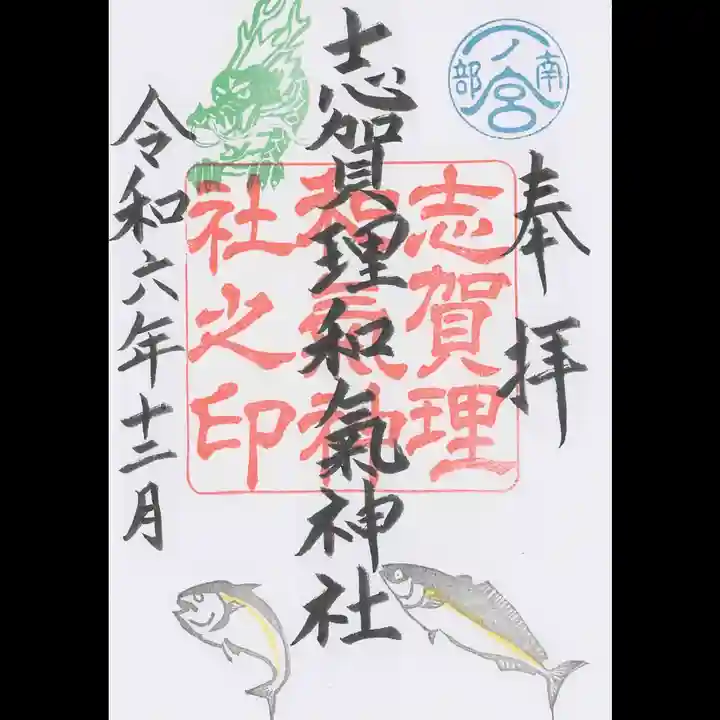 南部
一ノ宮
奉拝
志賀理和氣神社
志賀理
和氣神
社之印
令和六年十二月